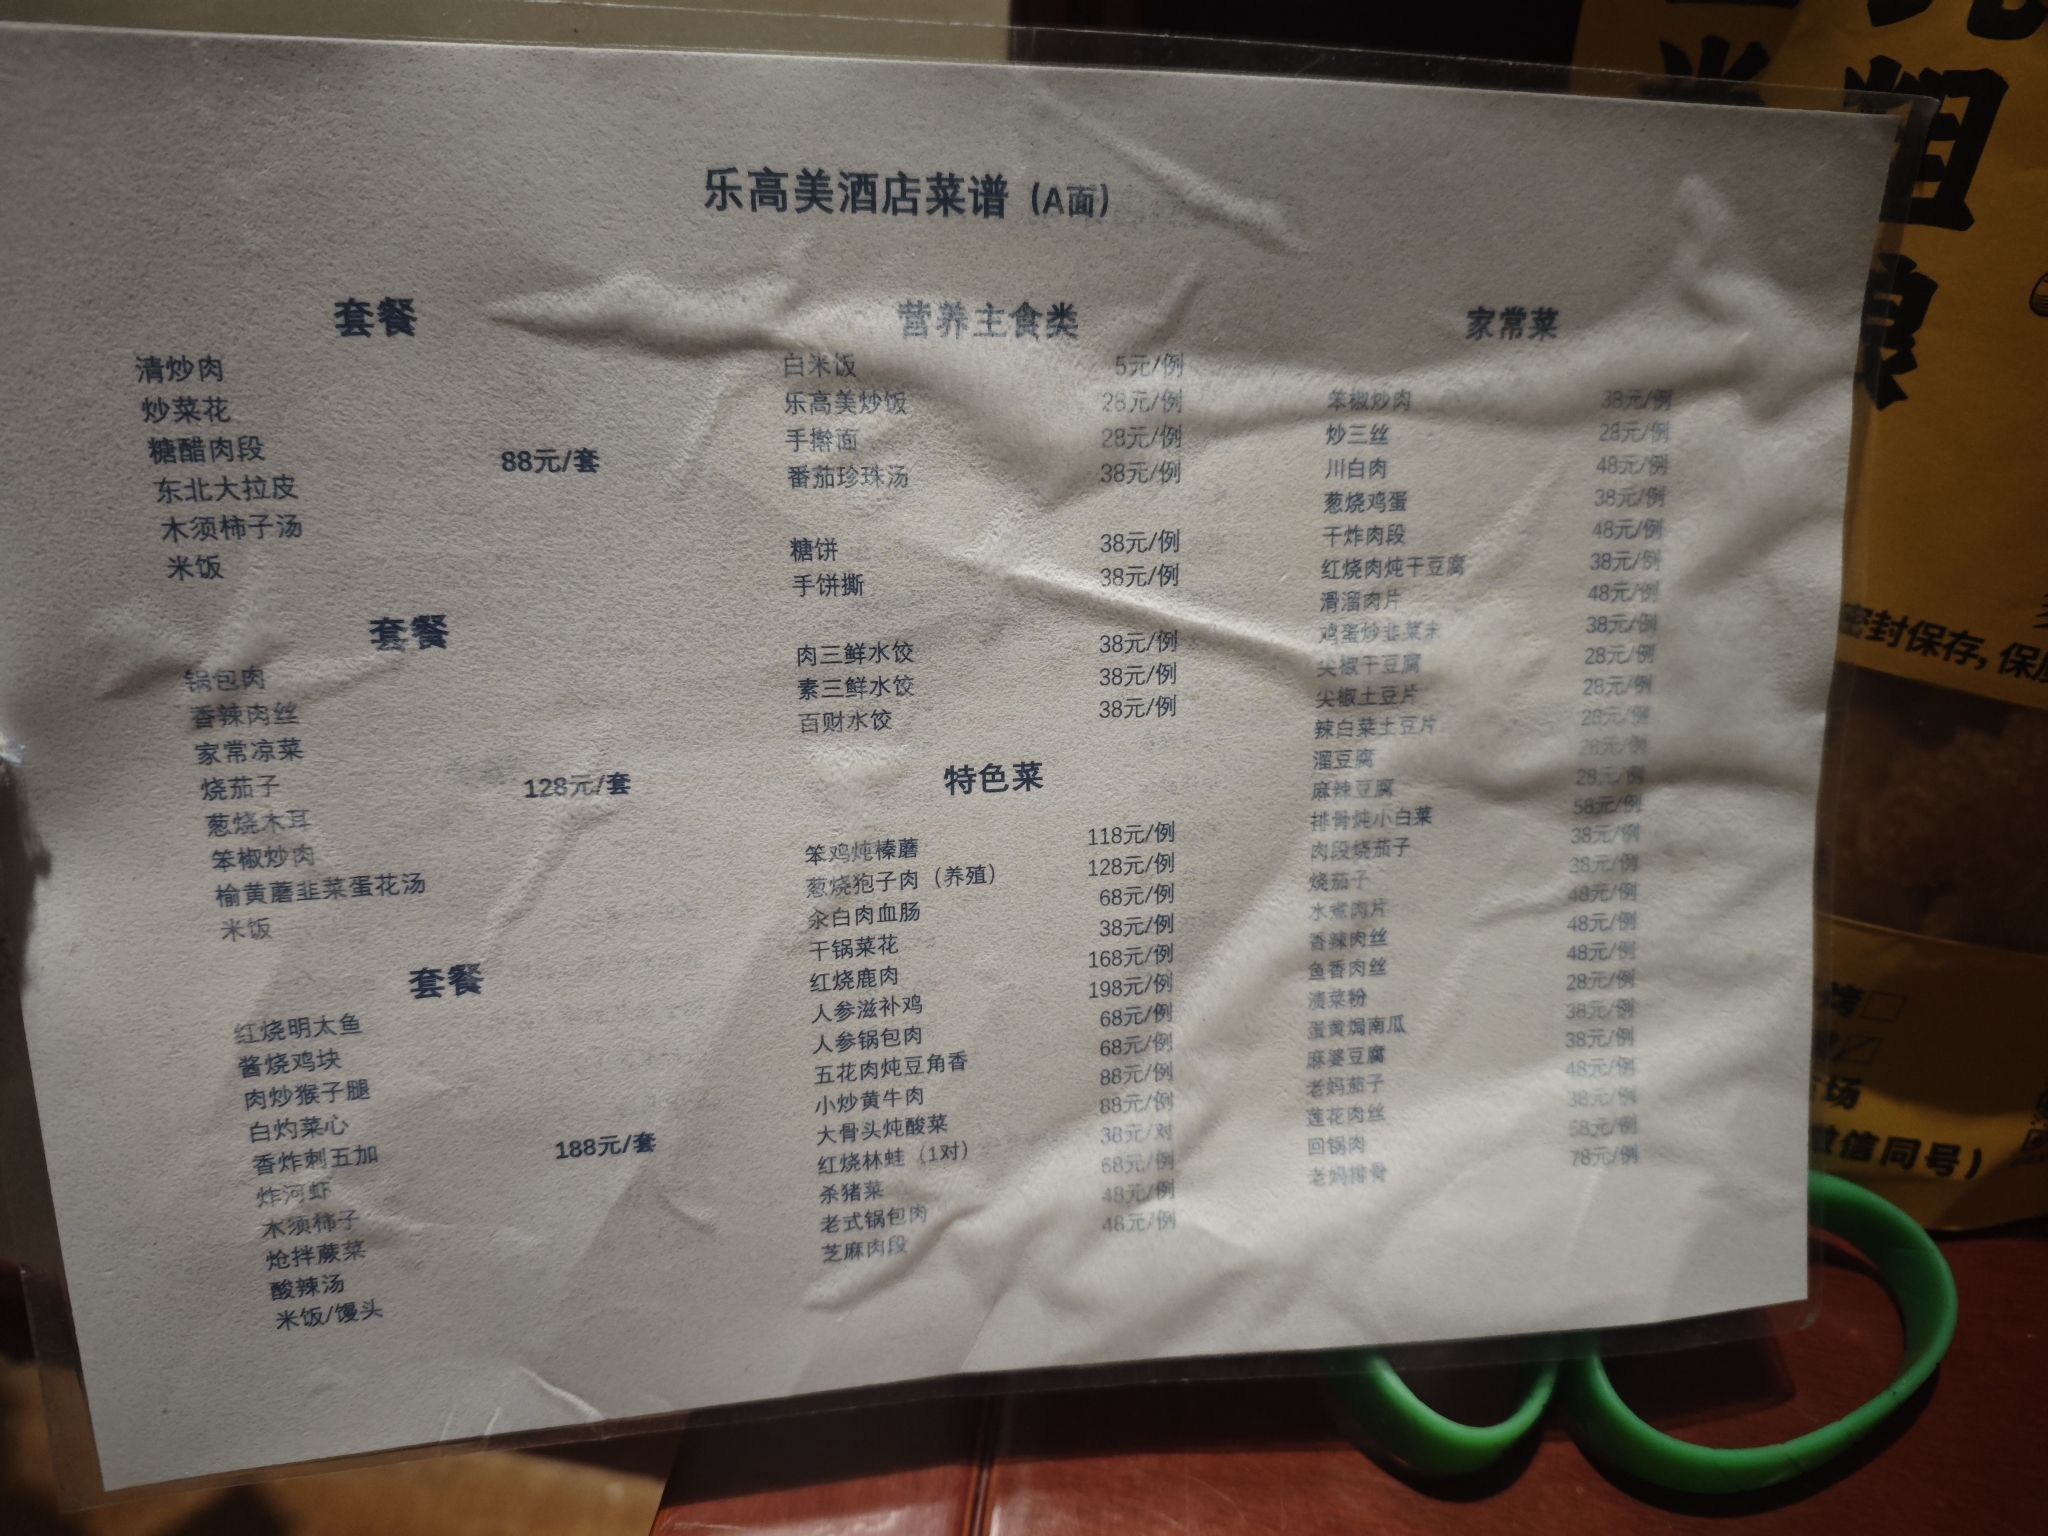 乐高美酒店菜谱（A面）
套餐
清炒肉
炒菜花
糖醋肉段
东北大拉皮
木须柿子汤
米饭
88元/套
套餐
锅包肉
香辣肉丝
家常凉菜
烧茄子
葱烧木耳
笨椒炒肉
榆黄蘑韭菜蛋花汤
米饭
128元/套
套餐
红烧明太鱼
酱烧鸡块
肉炒猴子腿
白灼菜心
香炸刺五加
炸河虾
木须柿子
炝拌蕨菜
酸辣汤
米饭/馒头
188元/套
营养主食类
白米饭 5元/例
乐高美炒饭 28元/例
手擀面 28元/例
番茄珍珠汤 38元/例
糖饼 38元/例
手饼撕 38元/例
肉三鲜水饺 38元/例
素三鲜水饺 38元/例
百财水饺 38元/例
特色菜
笨鸡炖榛蘑 118元/例
葱烧狍子肉（养殖） 128元/例
汆白肉血肠 68元/例
干锅菜花 38元/例
红烧鹿肉 168元/例
人参滋补鸡 198元/例
人参锅包肉 68元/例
五花肉炖豆角香 68元/例
小炒黄牛肉 88元/例
大骨头炖酸菜 88元/例
红烧林蛙（1对） 38元/对
杀猪菜 68元/例
老式锅包肉 48元/例
芝麻肉段 48元/例
家常菜
笨椒炒肉 38元/例
炒三丝 28元/例
川白肉 48元/例
葱烧鸡蛋 38元/例
干炸肉段 48元/例
红烧肉炖干豆腐 38元/例
滑溜肉片 48元/例
鸡蛋炒韭菜末 38元/例
尖椒干豆腐 28元/例
尖椒土豆片 28元/例
辣白菜土豆片 28元/例
溜豆腐 28元/例
麻辣豆腐 28元/例
排骨炖小白菜 58元/例
肉段烧茄子 38元/例
烧茄子 38元/例
水煮肉片 48元/例
香辣肉丝 48元/例
鱼香肉丝 48元/例
渍菜粉 28元/例
蛋黄焗南瓜 38元/例
麻婆豆腐 38元/例
老妈茄子 48元/例
莲花肉丝 38元/例
回锅肉 58元/例
老妈排骨 78元/例
粗
粮
密封保存，保
场
微信同号）